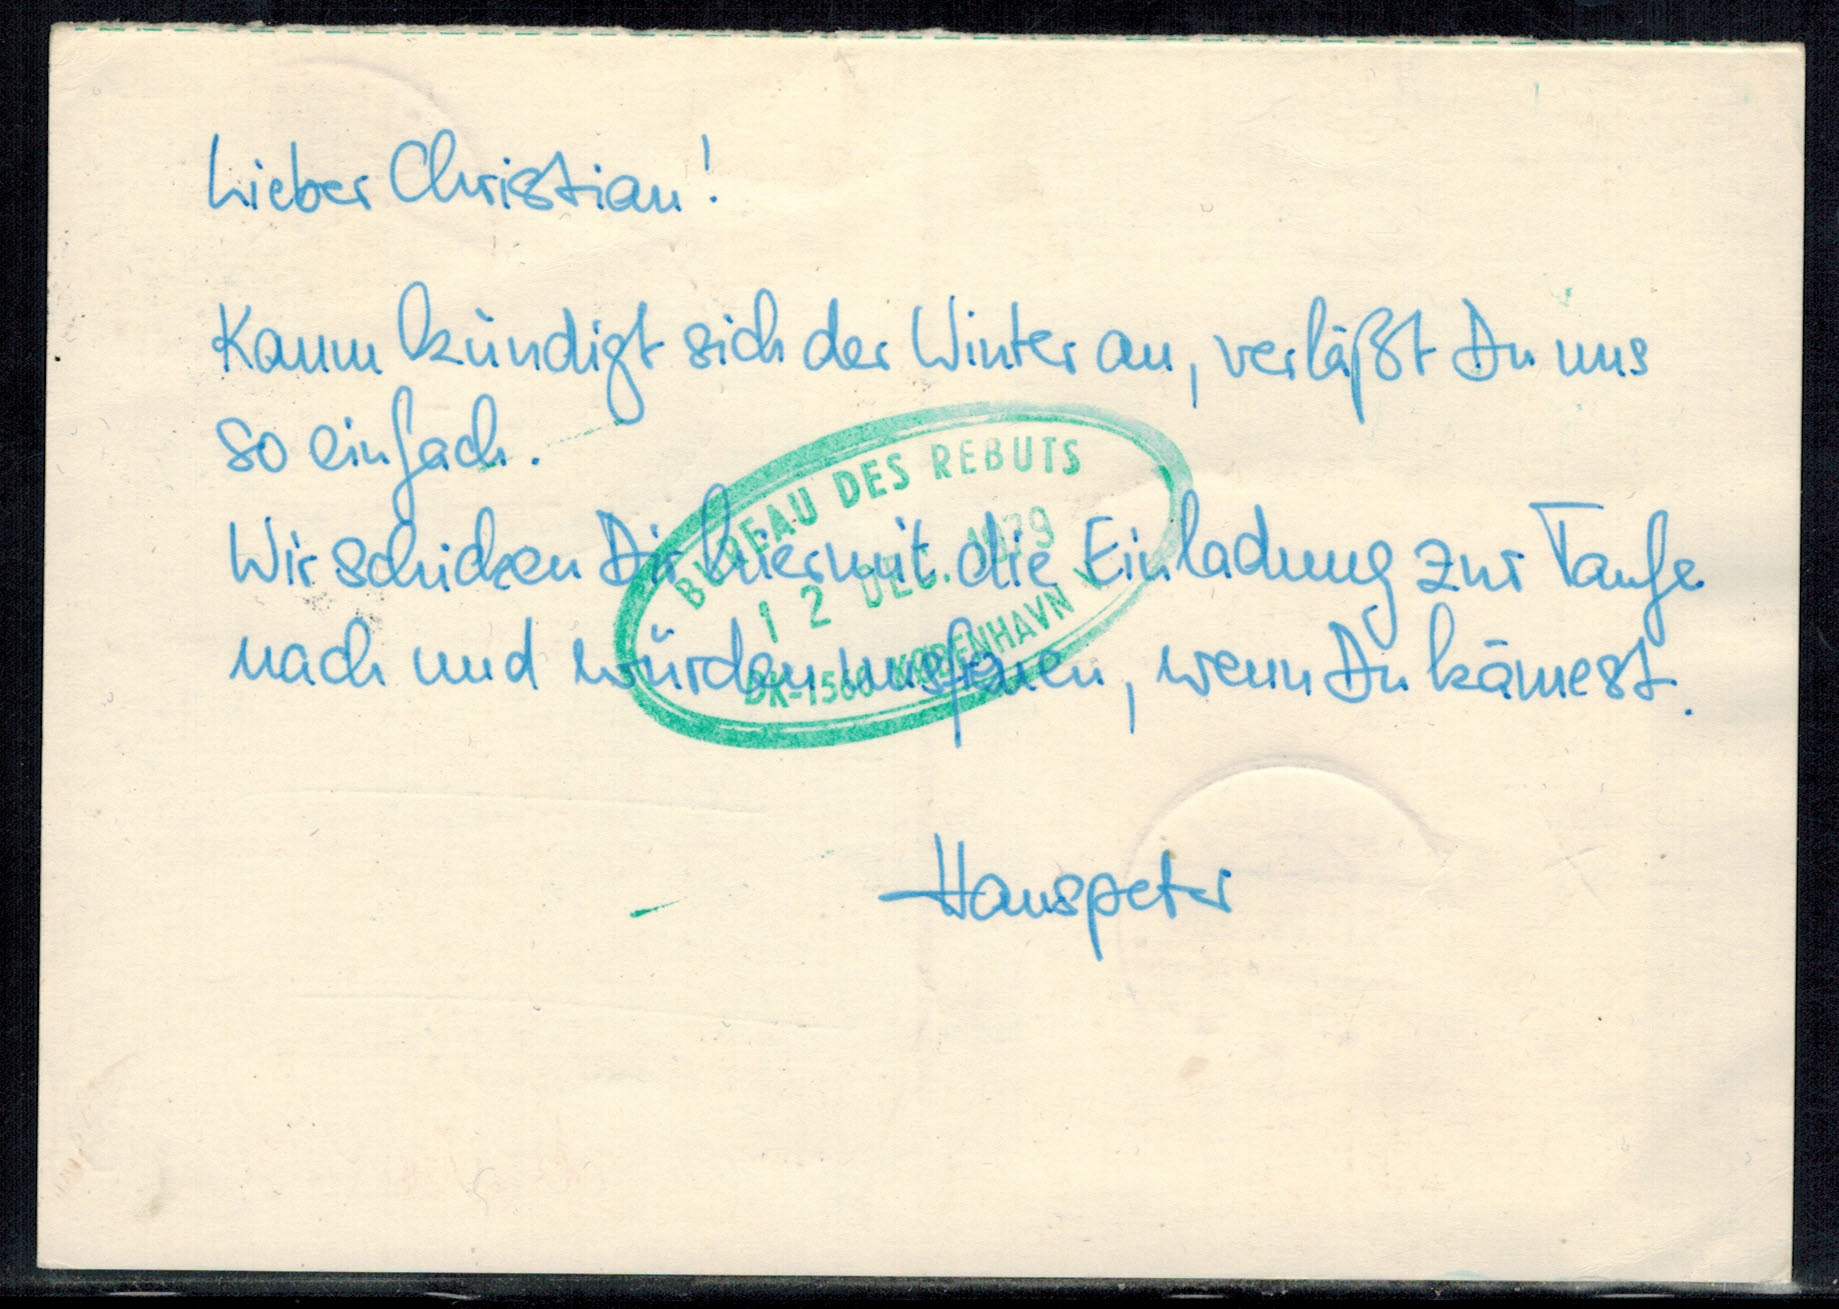 Lieber Christian!
Kaum kündigt sich der Winter an, verläßt Du uns
so einfach.
BUREAU DES REBUTS
12 DEC. 1979
DK-1560 KØBENHAVN V
Wir schicken Dir hiermit die Einladung zur Taufe
nach und würden uns freuen, wenn Du kämest.
Hanspeter